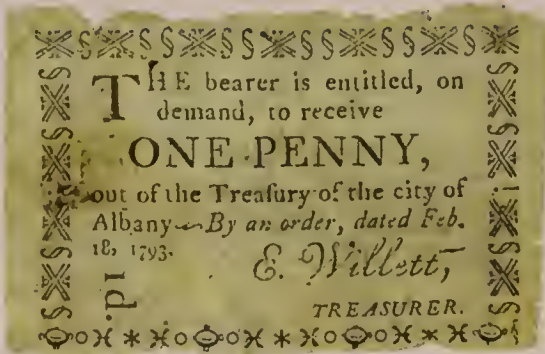 THE bearer is entitled, on
demand, to receive
ONE PENNY,
out of the Treaſury of the city of
Albany—By an order, dated Feb.
18, 1793.
E. Willett,
1d.
TREASURER.